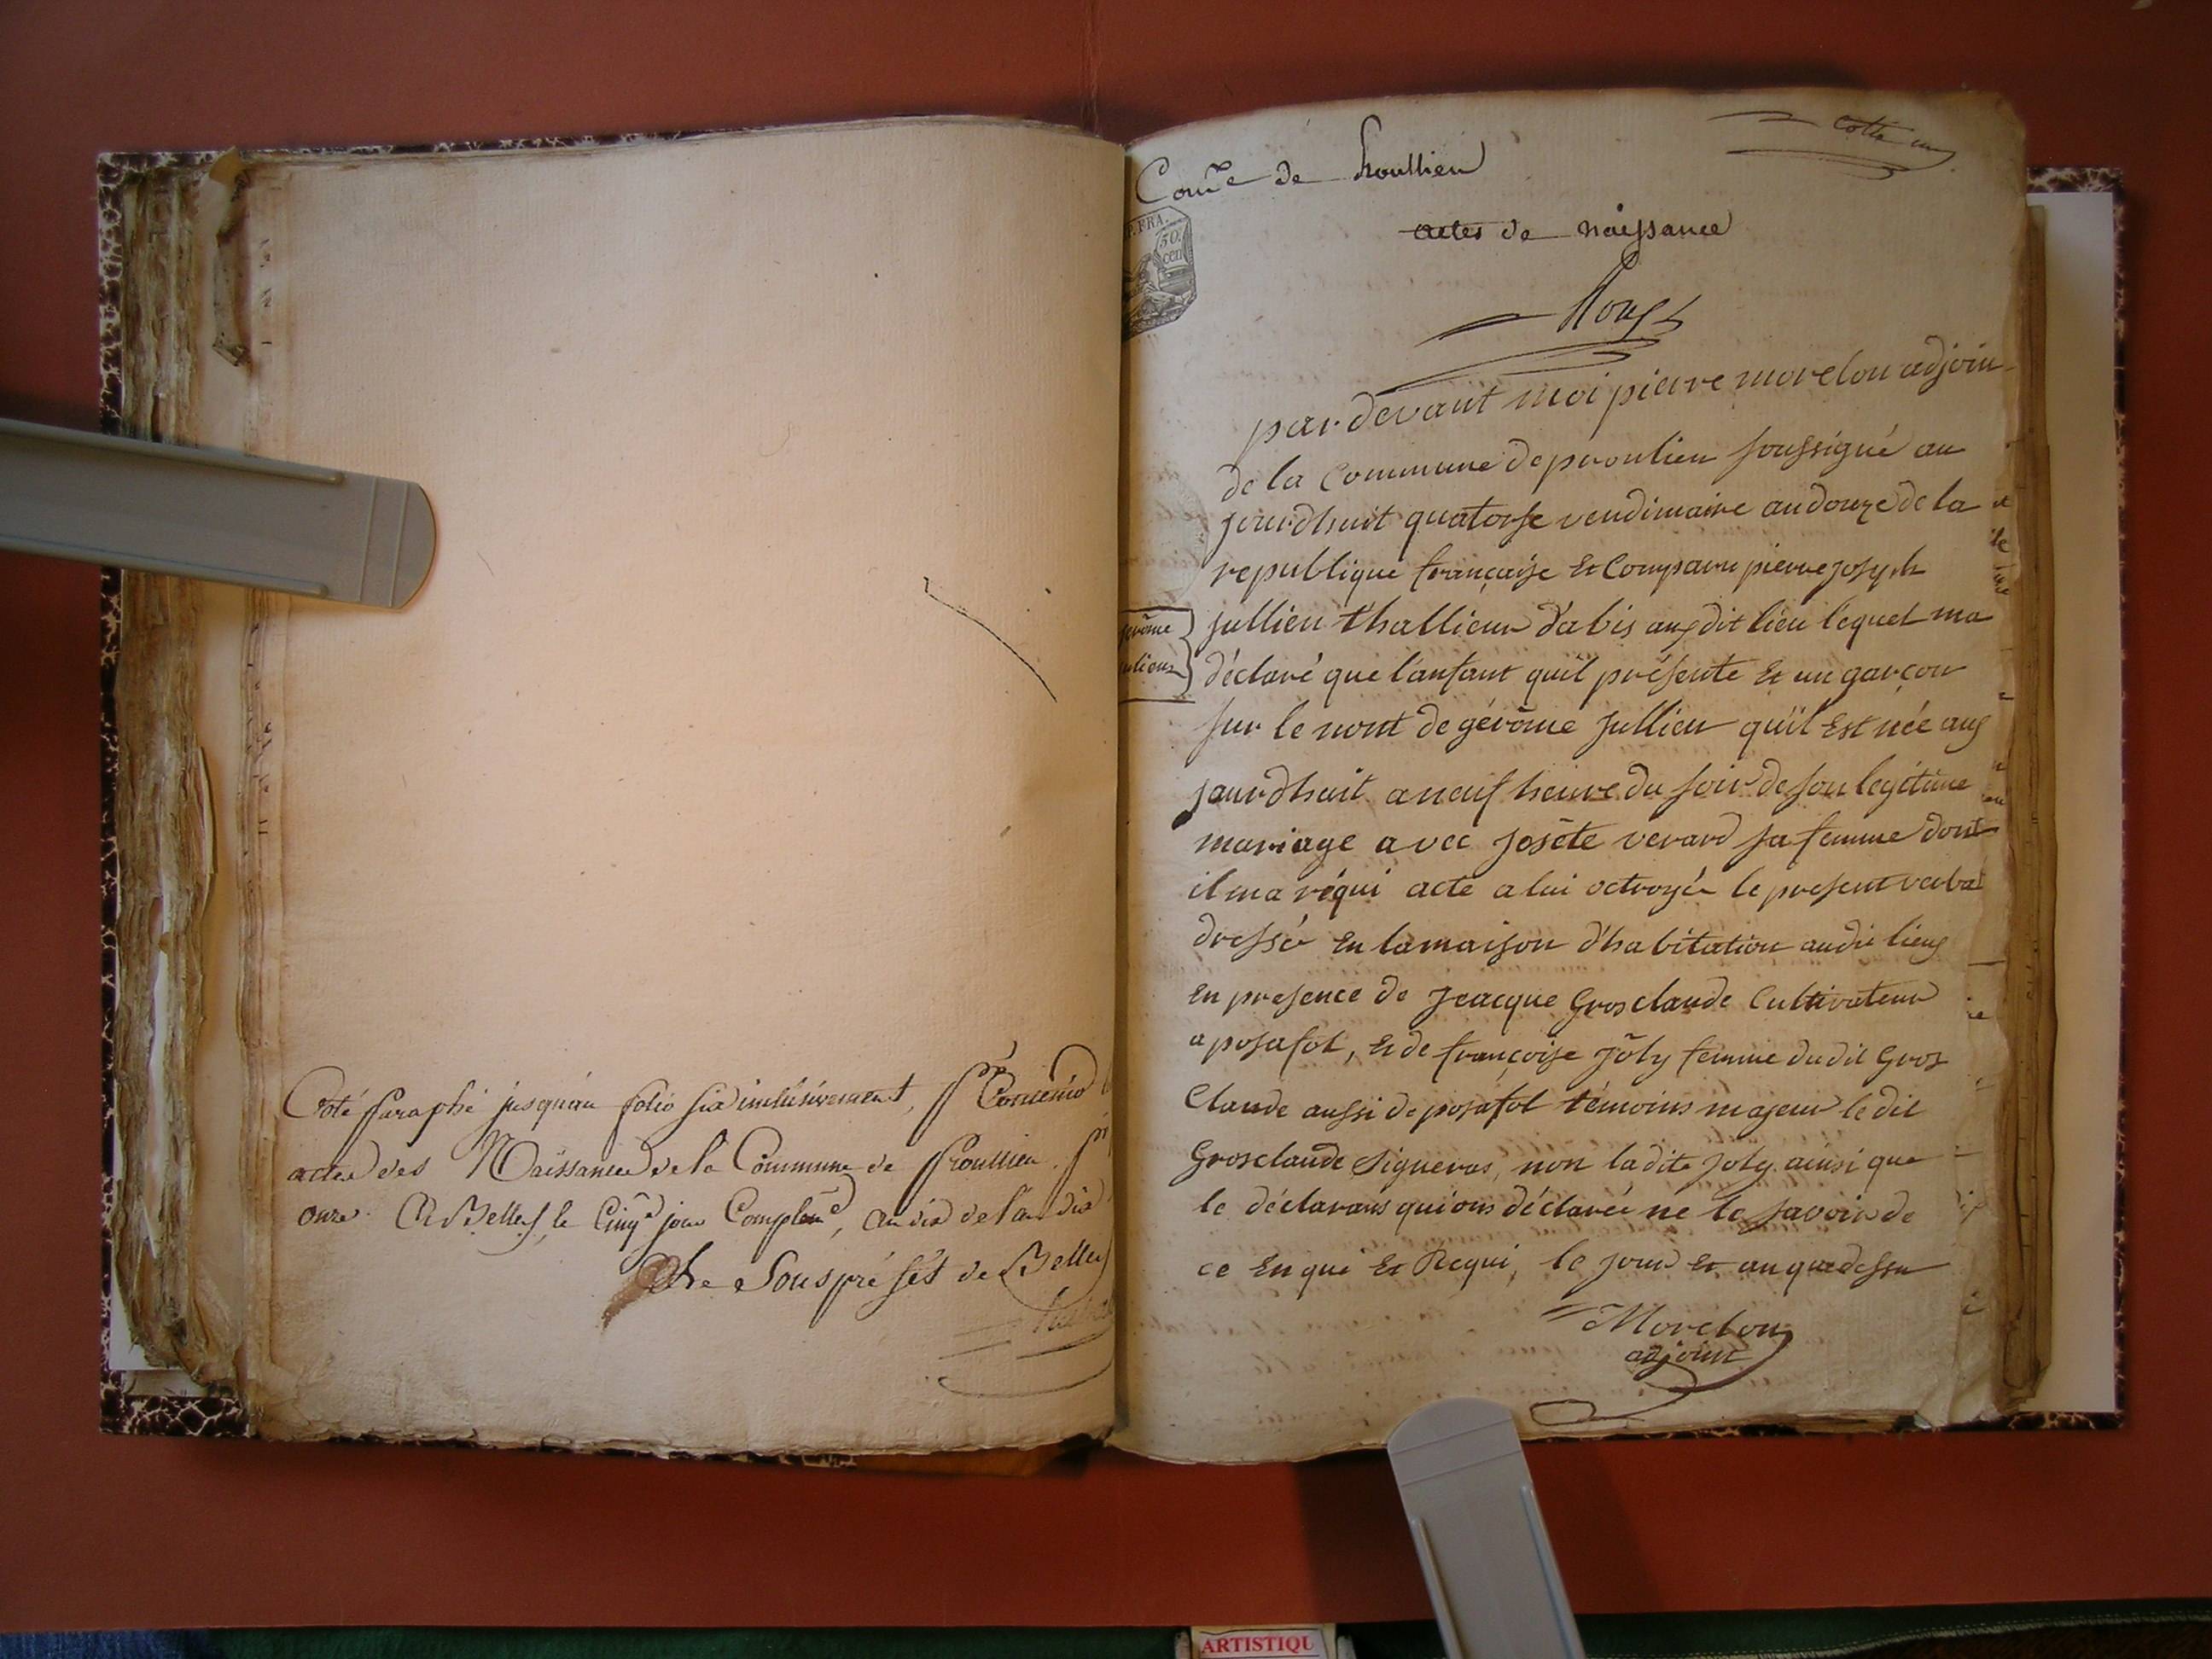 Coté paraphé jusqu'au folio six inclusivement, pr Contenir
actes des Naissances de la Commune de Proullieu
onze. A Belley, le Cinqe jour Complemre, an dix de l'an dix
Le Souspréfét de Belley
Comne de Proullieu
cotte un
actes de naissance
P. FRA.
50.
cen
par devant moi pierre morelon adjoin
de la Commune de proulieu soussigné au
jourdhuit quatorse vendimaire an douze de la
republique française Et Comparu pierre joseph
Jullien thallieur d'abis aux dit lieu lequel ma
déclaré que l'anfant quil présente Et un garçon
sur le nomt de gérôme Jullien qu'il Est née aux
jourdhuit a neuf heure du soir de son legitime
mariage avec joséte verard sa femme dont
il ma réqui acte a lui octroyée le present verbal
dressé En la maison d'habitation audit lieux
En presence de Jeacque Grosclaude Cultivateur
a posafol, Et de françoise Jôly femme du dit Gros
Claude aussi de posafol témoins majeur le dit
Grosclaude Signeras, non ladite Joly ainsi que
le déclarans qui ons déclarée né le savoir de
ce Enqui Et Requi, le jour Et an que dessu
Morelon
adjoint
gerôme
julien
ARTISTIQU